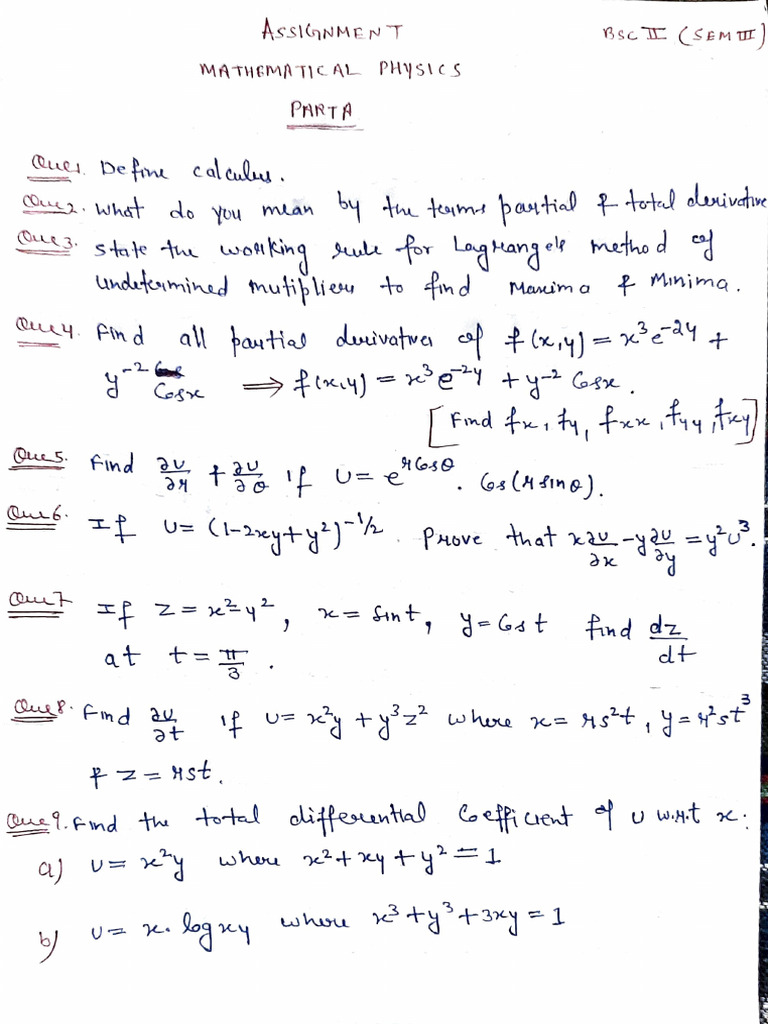 ASSIGNMENT BSC II (SEM III)
MATHEMATICAL PHYSICS
PART A
Que1. Define calculus.
Que2. What do you mean by the terms partial & total derivative
Que3. State the working rule for Lagrange's method of
undetermined mutipliers to find Maxima & Minima.
Que4. Find all partial derivatives of f(x,y) = x³e^-2y +
y^-2 Cosx ⟹ f(x,y) = x³e^-2y + y^-2 Cosx.
[Find fx, fy, fxx, fyy, fxy]
Que5. Find ∂U/∂r + ∂U/∂θ if U = e^rCosθ . Cos(r sinθ).
Que6. If U = (1-2xy+y²)^-1/2. Prove that x∂U/∂x - y∂U/∂y = y²U³.
Que7 If z = x²y², x = Sint, y = Cost find dz/dt
at t = π/3.
Que8. Find ∂U/∂t if U = x²y + y³z² where x = rs²t, y = r²st³
& z = rst.
Que9. Find the total differential Coefficient of U w.r.t x:
a) U = x²y where x²+xy+y² = 1
b) U = x. log xy where x³+y³+3xy = 1